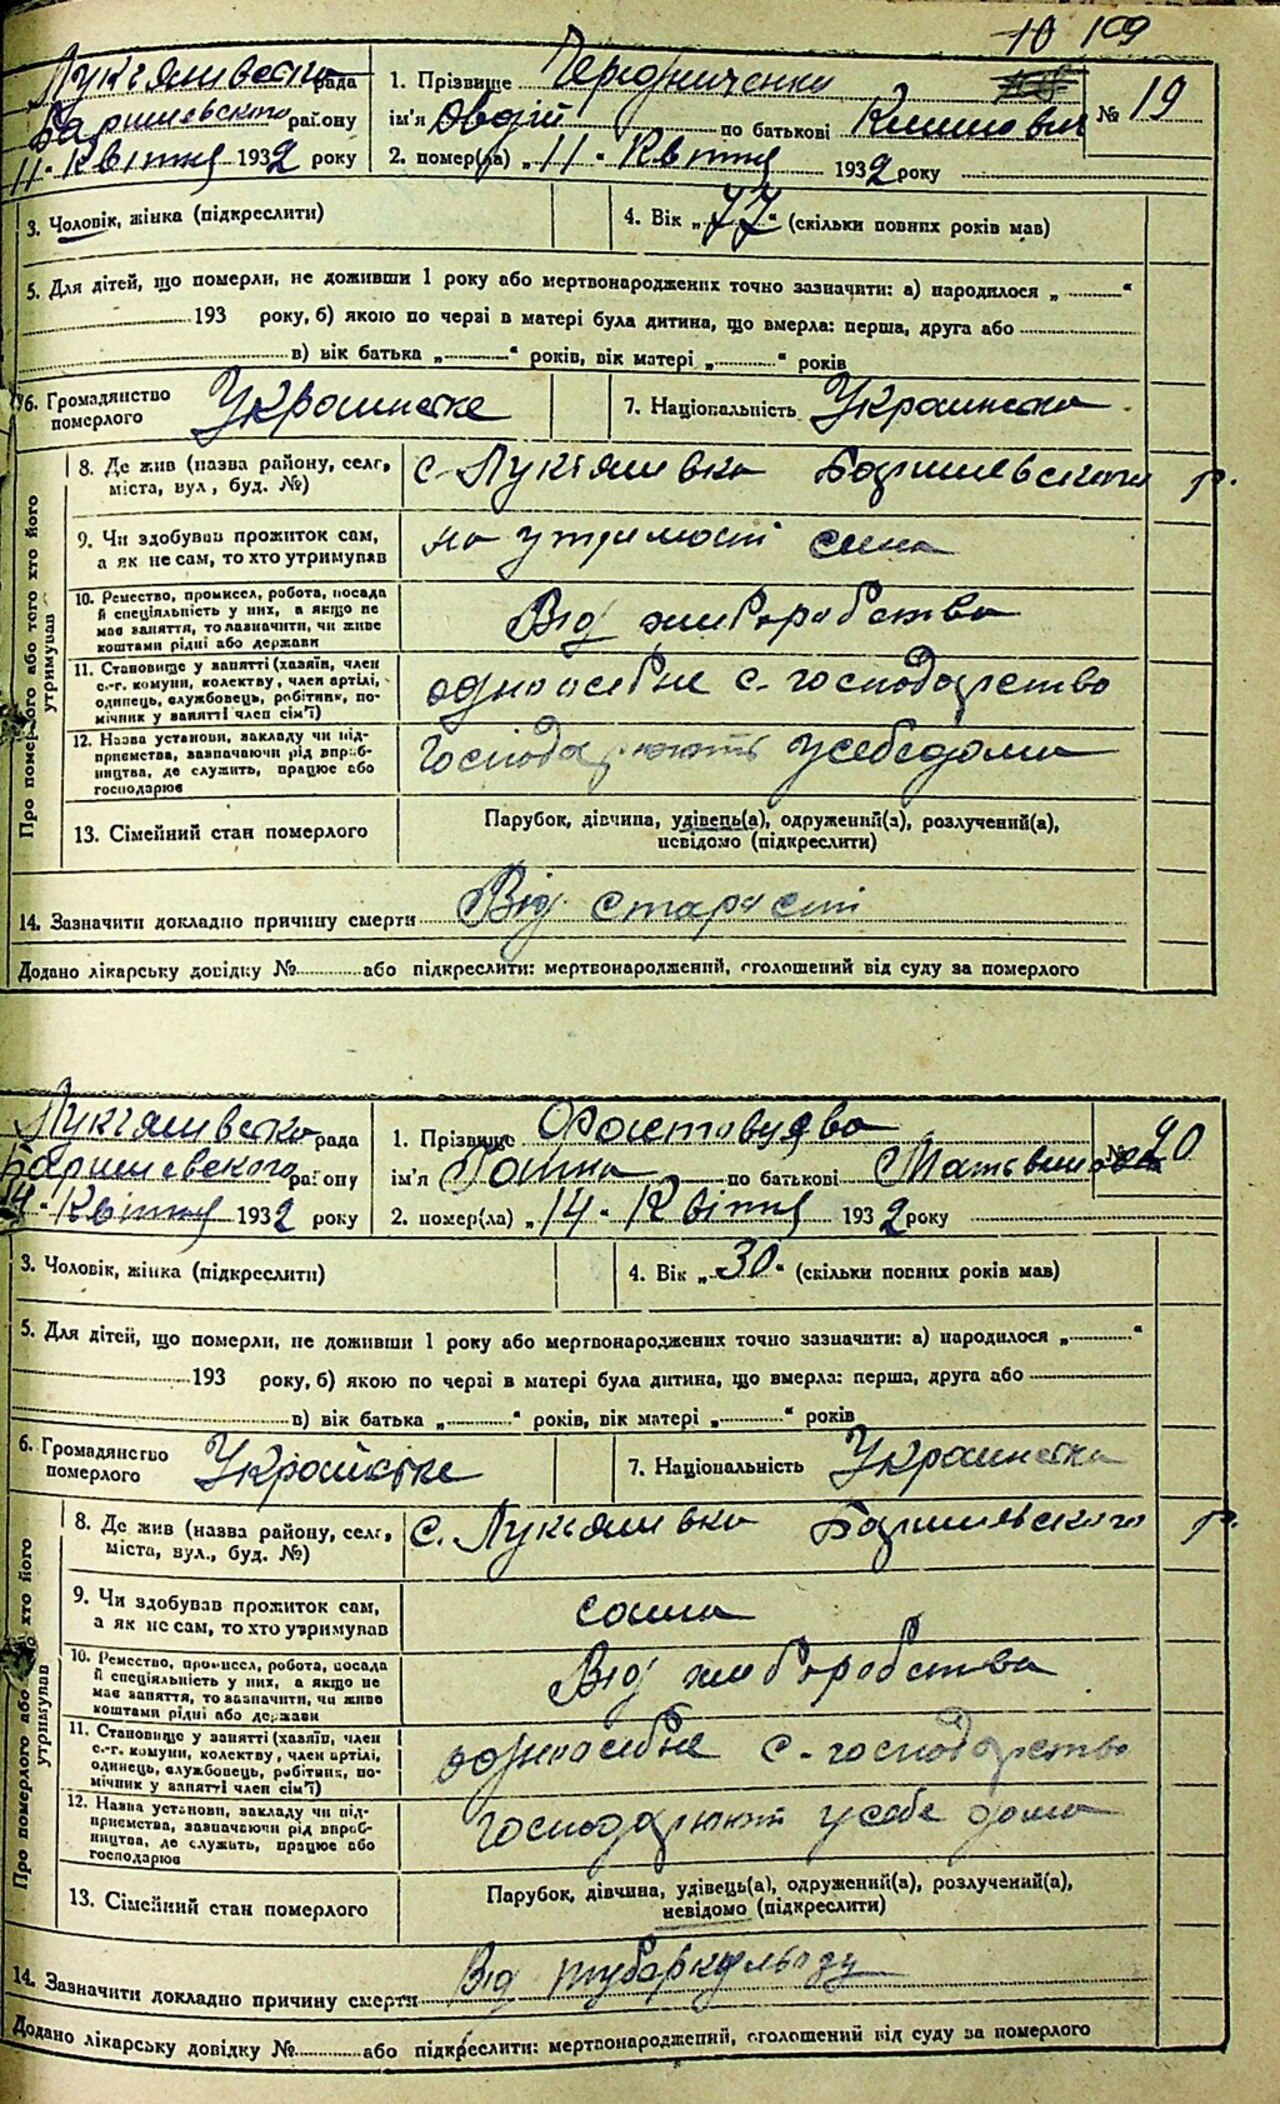 10 109
Лукіянивська рада
Баришевського району
11 · Квітня 1932 року
1. Прізвище Чередниченко
ім'я Овдій по батькові
№ 19
2. помер(ла) „ 11 " Квітня 1932 року
3. Чоловік, жінка (підкреслити)
4. Вік „ 77 " (скільки повних років мав)
5. Для дітей, що померли, не доживши 1 року або мертвонароджених точно зазначити: а) народилося „ "
193 року, б) якою по черзі в матері була дитина, що вмерла: перша, друга або
в) вік батька „ " років, вік матері „ " років
6. Громадянство
померлого
Украинське
7. Національність Украинська
Про померлого або того хто його
утримував
8. Де жив (назва району, село,
міста, вул., буд. №)
с. Лукіянивка Баришевського р.
9. Чи здобував прожиток сам,
а як не сам, то хто утримував
на утримості сина
10. Ремество, промисел, робота, посада
й спеціяльність у них, а якщо не
має заняття, то зазначити, чи живе
коштами рідні або держави
Від хліборобства
11. Становище у занятті (хазяїн, член
с.-г. комуни, колективу, член артілі,
одинець, службовець, робітник, по-
мічник у занятті член сім'ї)
одноосебне с-господарство
12. Назва установи, закладу чи під-
приємства, зазначаючи рід вироб-
ництва, де служить, працює або
господарює
Господарюють усебе дома
13. Сімейний стан померлого
Парубок, дівчина, удівець(а), одружений(а), розлучений(а),
невідомо (підкреслити)
14. Зазначити докладно причину смерти Від старості
Додано лікарську довідку № або підкреслити: мертвонароджений, оголошений від суду за померлого
Лукіянивська рада
Баришевського району
14 · Квітня 1932 року
1. Прізвище
ім'я по батькові Матвіивна
№ 20
2. помер(ла) „ 14 " Квітня 1932 року
3. Чоловік, жінка (підкреслити)
4. Вік „ 30 " (скільки повних років мав)
5. Для дітей, що померли, не доживши 1 року або мертвонароджених точно зазначити: а) народилося „ "
193 року, б) якою по черзі в матері була дитина, що вмерла: перша, друга або
в) вік батька „ " років, вік матері „ " років
6. Громадянство
померлого
Украйнське
7. Національність Украинська
Про померлого або того хто його
утримував
8. Де жив (назва району, село,
міста, вул., буд. №)
с. Лукіянивка Баришевського р.
9. Чи здобував прожиток сам,
а як не сам, то хто утримував
сама
10. Ремество, промисел, робота, посада
й спеціяльність у них, а якщо не
має заняття, то зазначити, чи живе
коштами рідні або держави
Від хліборобства
11. Становище у занятті (хазяїн, член
с.-г. комуни, колективу, член артілі,
одинець, службовець, робітник, по-
мічник у занятті член сім'ї)
одноосебне с-господарство
12. Назва установи, закладу чи під-
приємства, зазначаючи рід вироб-
ництва, де служить, працює або
господарює
Господарюют у себе дома
13. Сімейний стан померлого
Парубок, дівчина, удівець(а), одружений(а), розлучений(а),
невідомо (підкреслити)
14. Зазначити докладно причину смерти Від туборкульозу
Додано лікарську довідку № або підкреслити: мертвонароджений, оголошений від суду за померлого